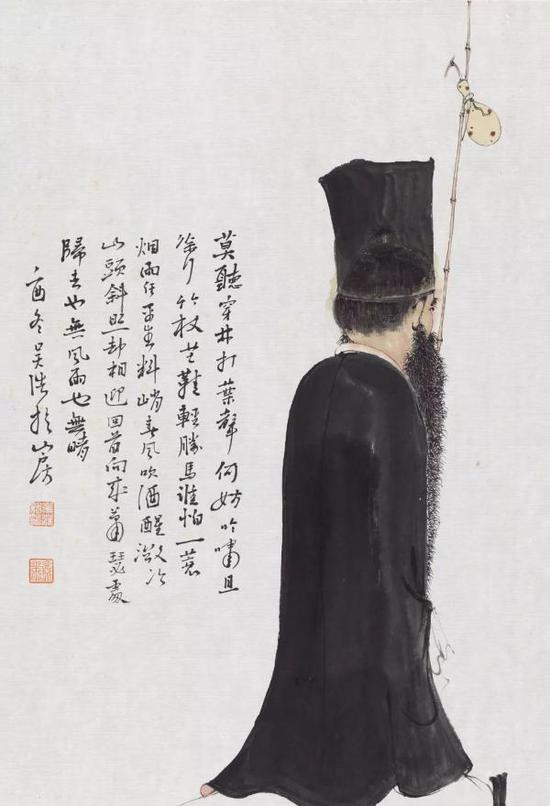 莫聽穿林打葉聲何妨吟嘯且
徐行竹杖芒鞋輕勝馬誰怕一蓑
烟雨任平生料峭春風吹酒醒微冷
山頭斜照却相迎回首向來蕭瑟處
歸去也無風雨也無晴
酉冬吴於山房